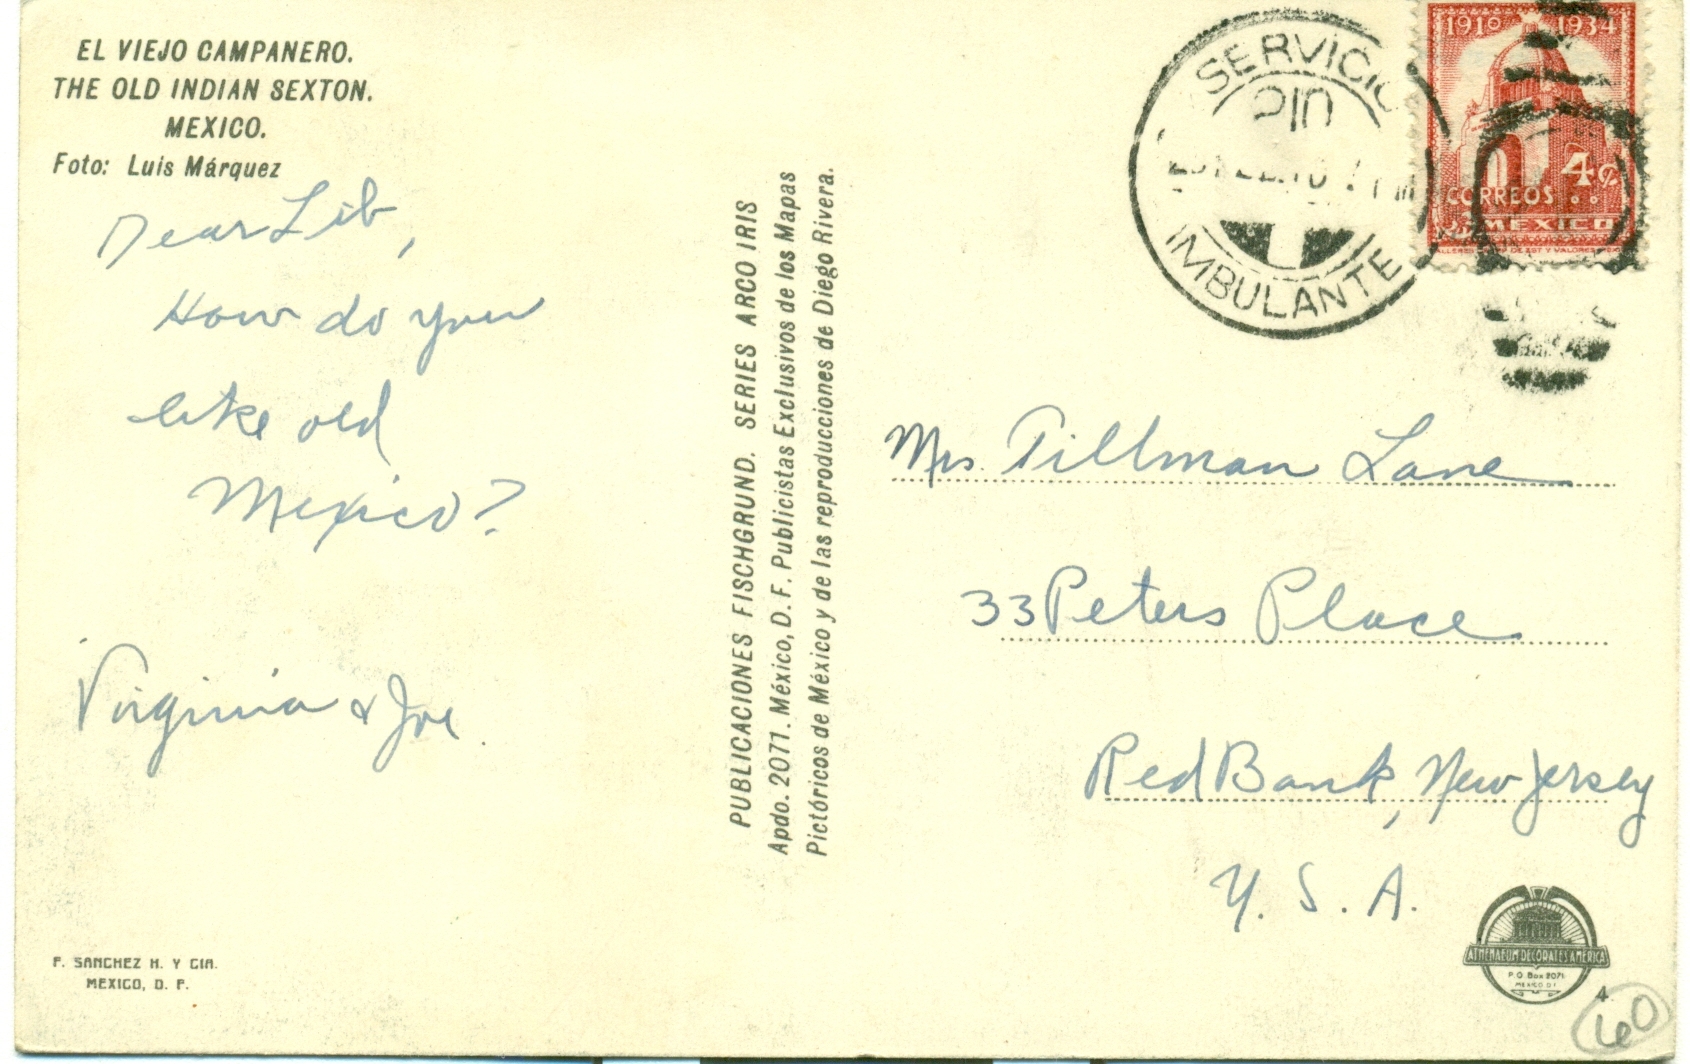 EL VIEJO CAMPANERO.
THE OLD INDIAN SEXTON.
MEXICO.
Foto: Luis Márquez
Dear Lib,
How do you
like old
Mexico?
Virginia & Joe
F. SANCHEZ H. Y CIA.
MEXICO, D. F.
PUBLICACIONES FISCHGRUND. SERIES ARCO IRIS
Apdo. 2071. México, D. F. Publicistas Exclusivos de los Mapas
Pictóricos de México y de las reproducciones de Diego Rivera.
SERVICIO
AMBULANTE
1910 1934
4¢
CORREOS
MEXICO
Mrs. Tillman Lane
33 Peters Place
Red Bank, New Jersey
U. S. A.
ATHENAEUM DECORATES AMERICA
P.O. Box 2071
MEXICO D F
4
60